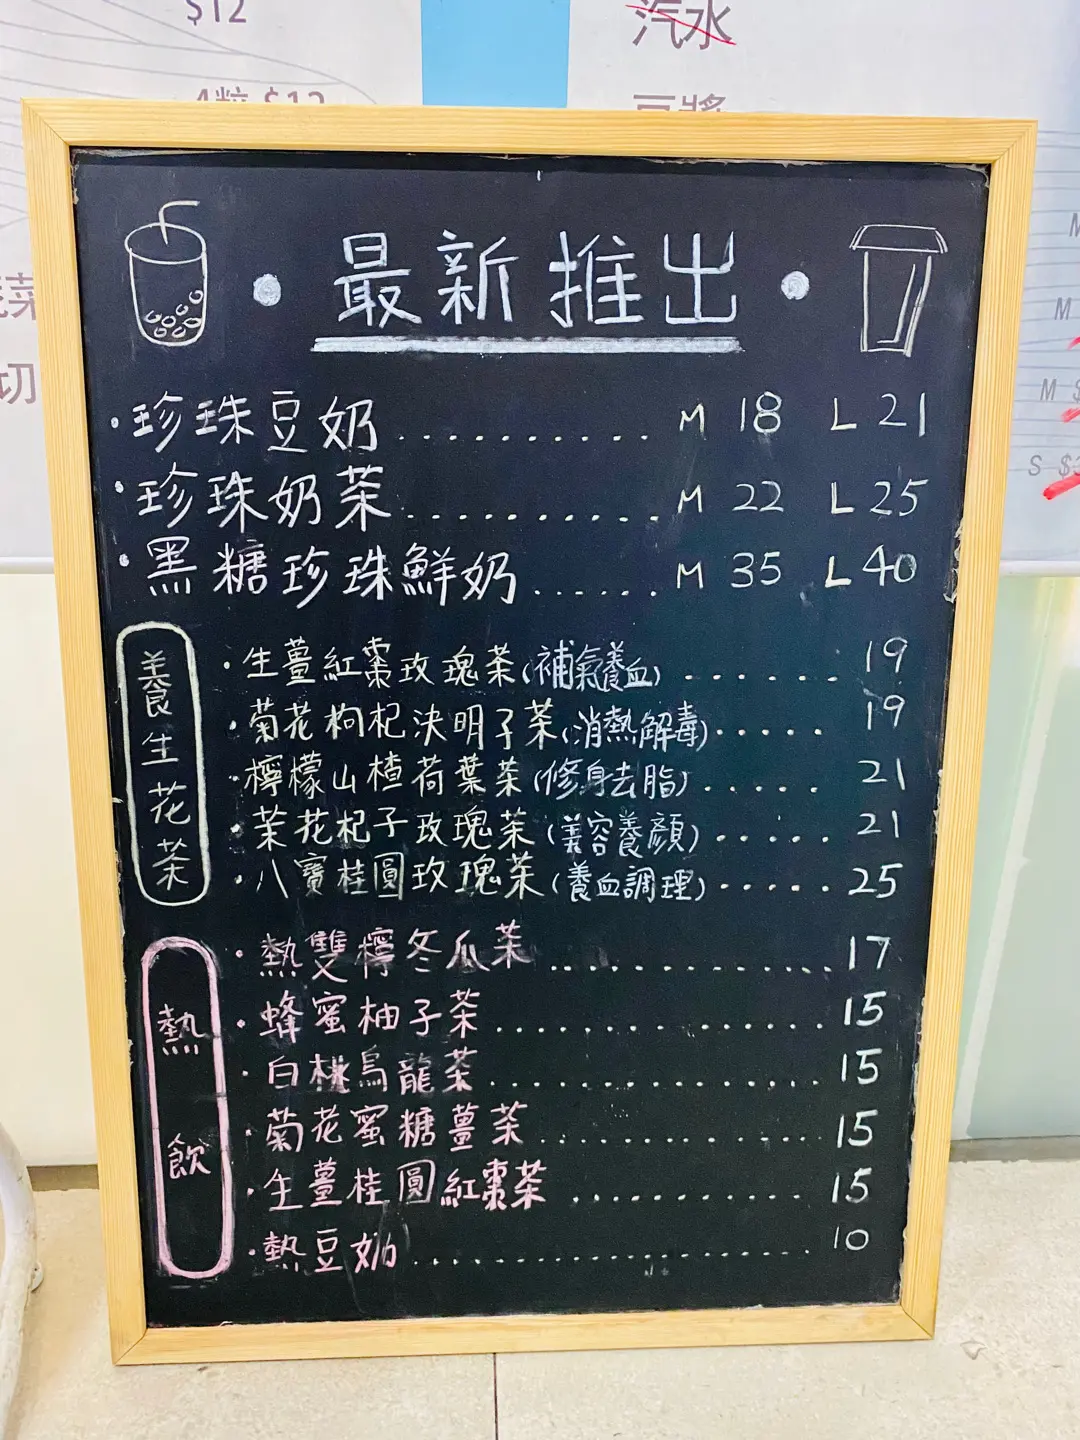 $12
4粒 $12
汽水
豆漿
菜
切
M
M
M $
S $3
• 最新推出 •
• 珍珠豆奶.......... M 18 L 21
• 珍珠奶茶........... M 22 L 25
• 黑糖珍珠鮮奶...... M 35 L 40
養生花茶
• 生薑紅棗玫瑰茶(補氣養血)....... 19
• 菊花枸杞決明子茶(消熱解毒)..... 19
• 檸檬山楂荷葉茶(修身去脂)..... 21
• 茉花杞子玫瑰茶(美容養顏)..... 21
• 八寶桂圓玫瑰茶(養血調理)..... 25
熱飲
• 熱雙檸冬瓜茶.............. 17
• 蜂蜜柚子茶................ 15
• 白桃烏龍茶................ 15
• 菊花蜜糖薑茶.............. 15
• 生薑桂圓紅棗茶........... 15
• 熱豆奶................... 10